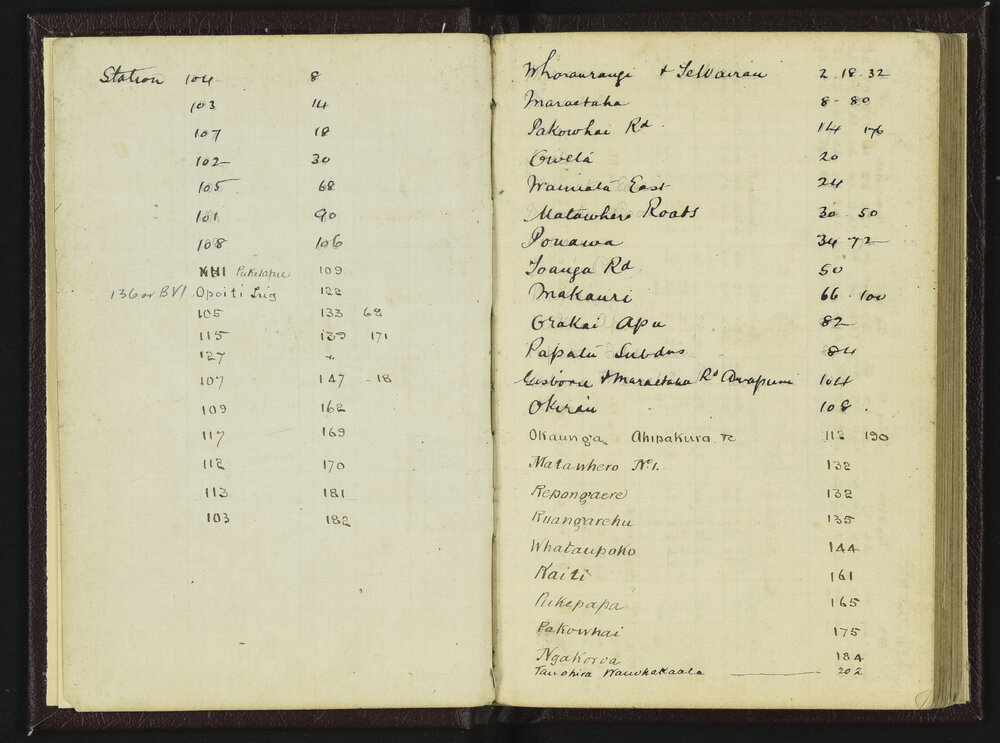 Station 104 8
103 14
107 18
102 30
105 68
101 90
108 106
XHI Puketapu 109
136 or BVI Opoiti Trig 122
105 133 68
115 139 171
127 "
107 147 - 18
109 162
117 169
112 170
113 181
103 182
Whoraurangi & TeWairau 2 18 32
Maraetaha 8 - 80
Pakowhai Rd 14 176
Oweta 20
Waimata East 24
Matawhero Roads 30 50
Pouawa 34 - 72
Toanga Rd 50
Makauri 66 100
Orakai Apu 82
Papatu Subdns 84
Gisborne & Maraetaha Rd Awapuni 104
Okirau 108
Okaunga Ahipakura Tc 113 190
Matawhero No 1. 132
Repongaere 132
Ruangarehu 135
Whataupoko 144
Kaiti 161
Pukepapa 165
Pakowhai 175
Ngakoroa 184
202